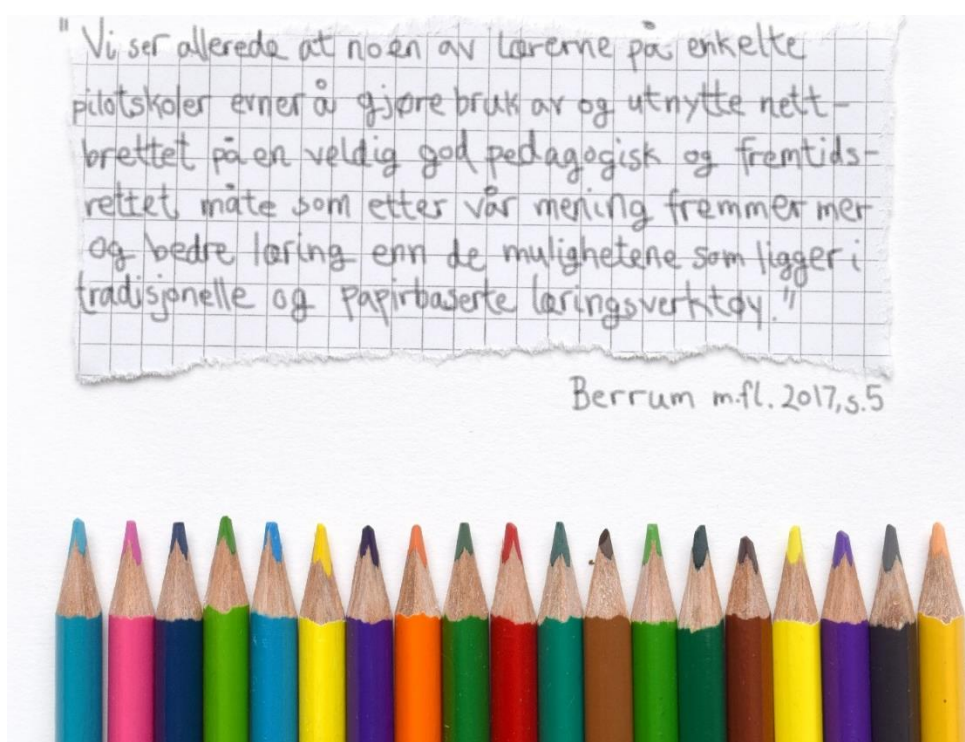 "Vi ser allerede at noen av lærerne på enkelte
pilotskoler evner å gjøre bruk av og utnytte nett-
brettet på en veldig god pedagogisk og fremtids-
rettet måte som etter vår mening fremmer mer
og bedre læring enn de mulighetene som ligger i
tradisjonelle og papirbaserte læringsverktøy."
Berrum m.fl. 2017, s.5